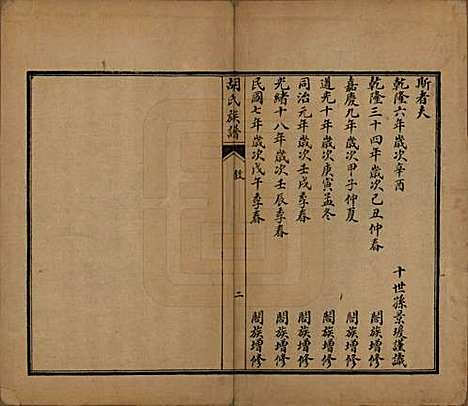 斯者夫
乾隆六年歲次辛酉　十世孫景瑗謹識
乾隆三十四年歲次己丑仲春　闔族增修
嘉慶九年歲次甲子仲夏　闔族增修
道光十年歲次庚寅孟冬　闔族增修
同治元年歲次壬戌季春　闔族增修
光緒十八年歲次壬辰季春　闔族增修
民國七年歲次戊午季春　闔族增修
胡氏族譜
二